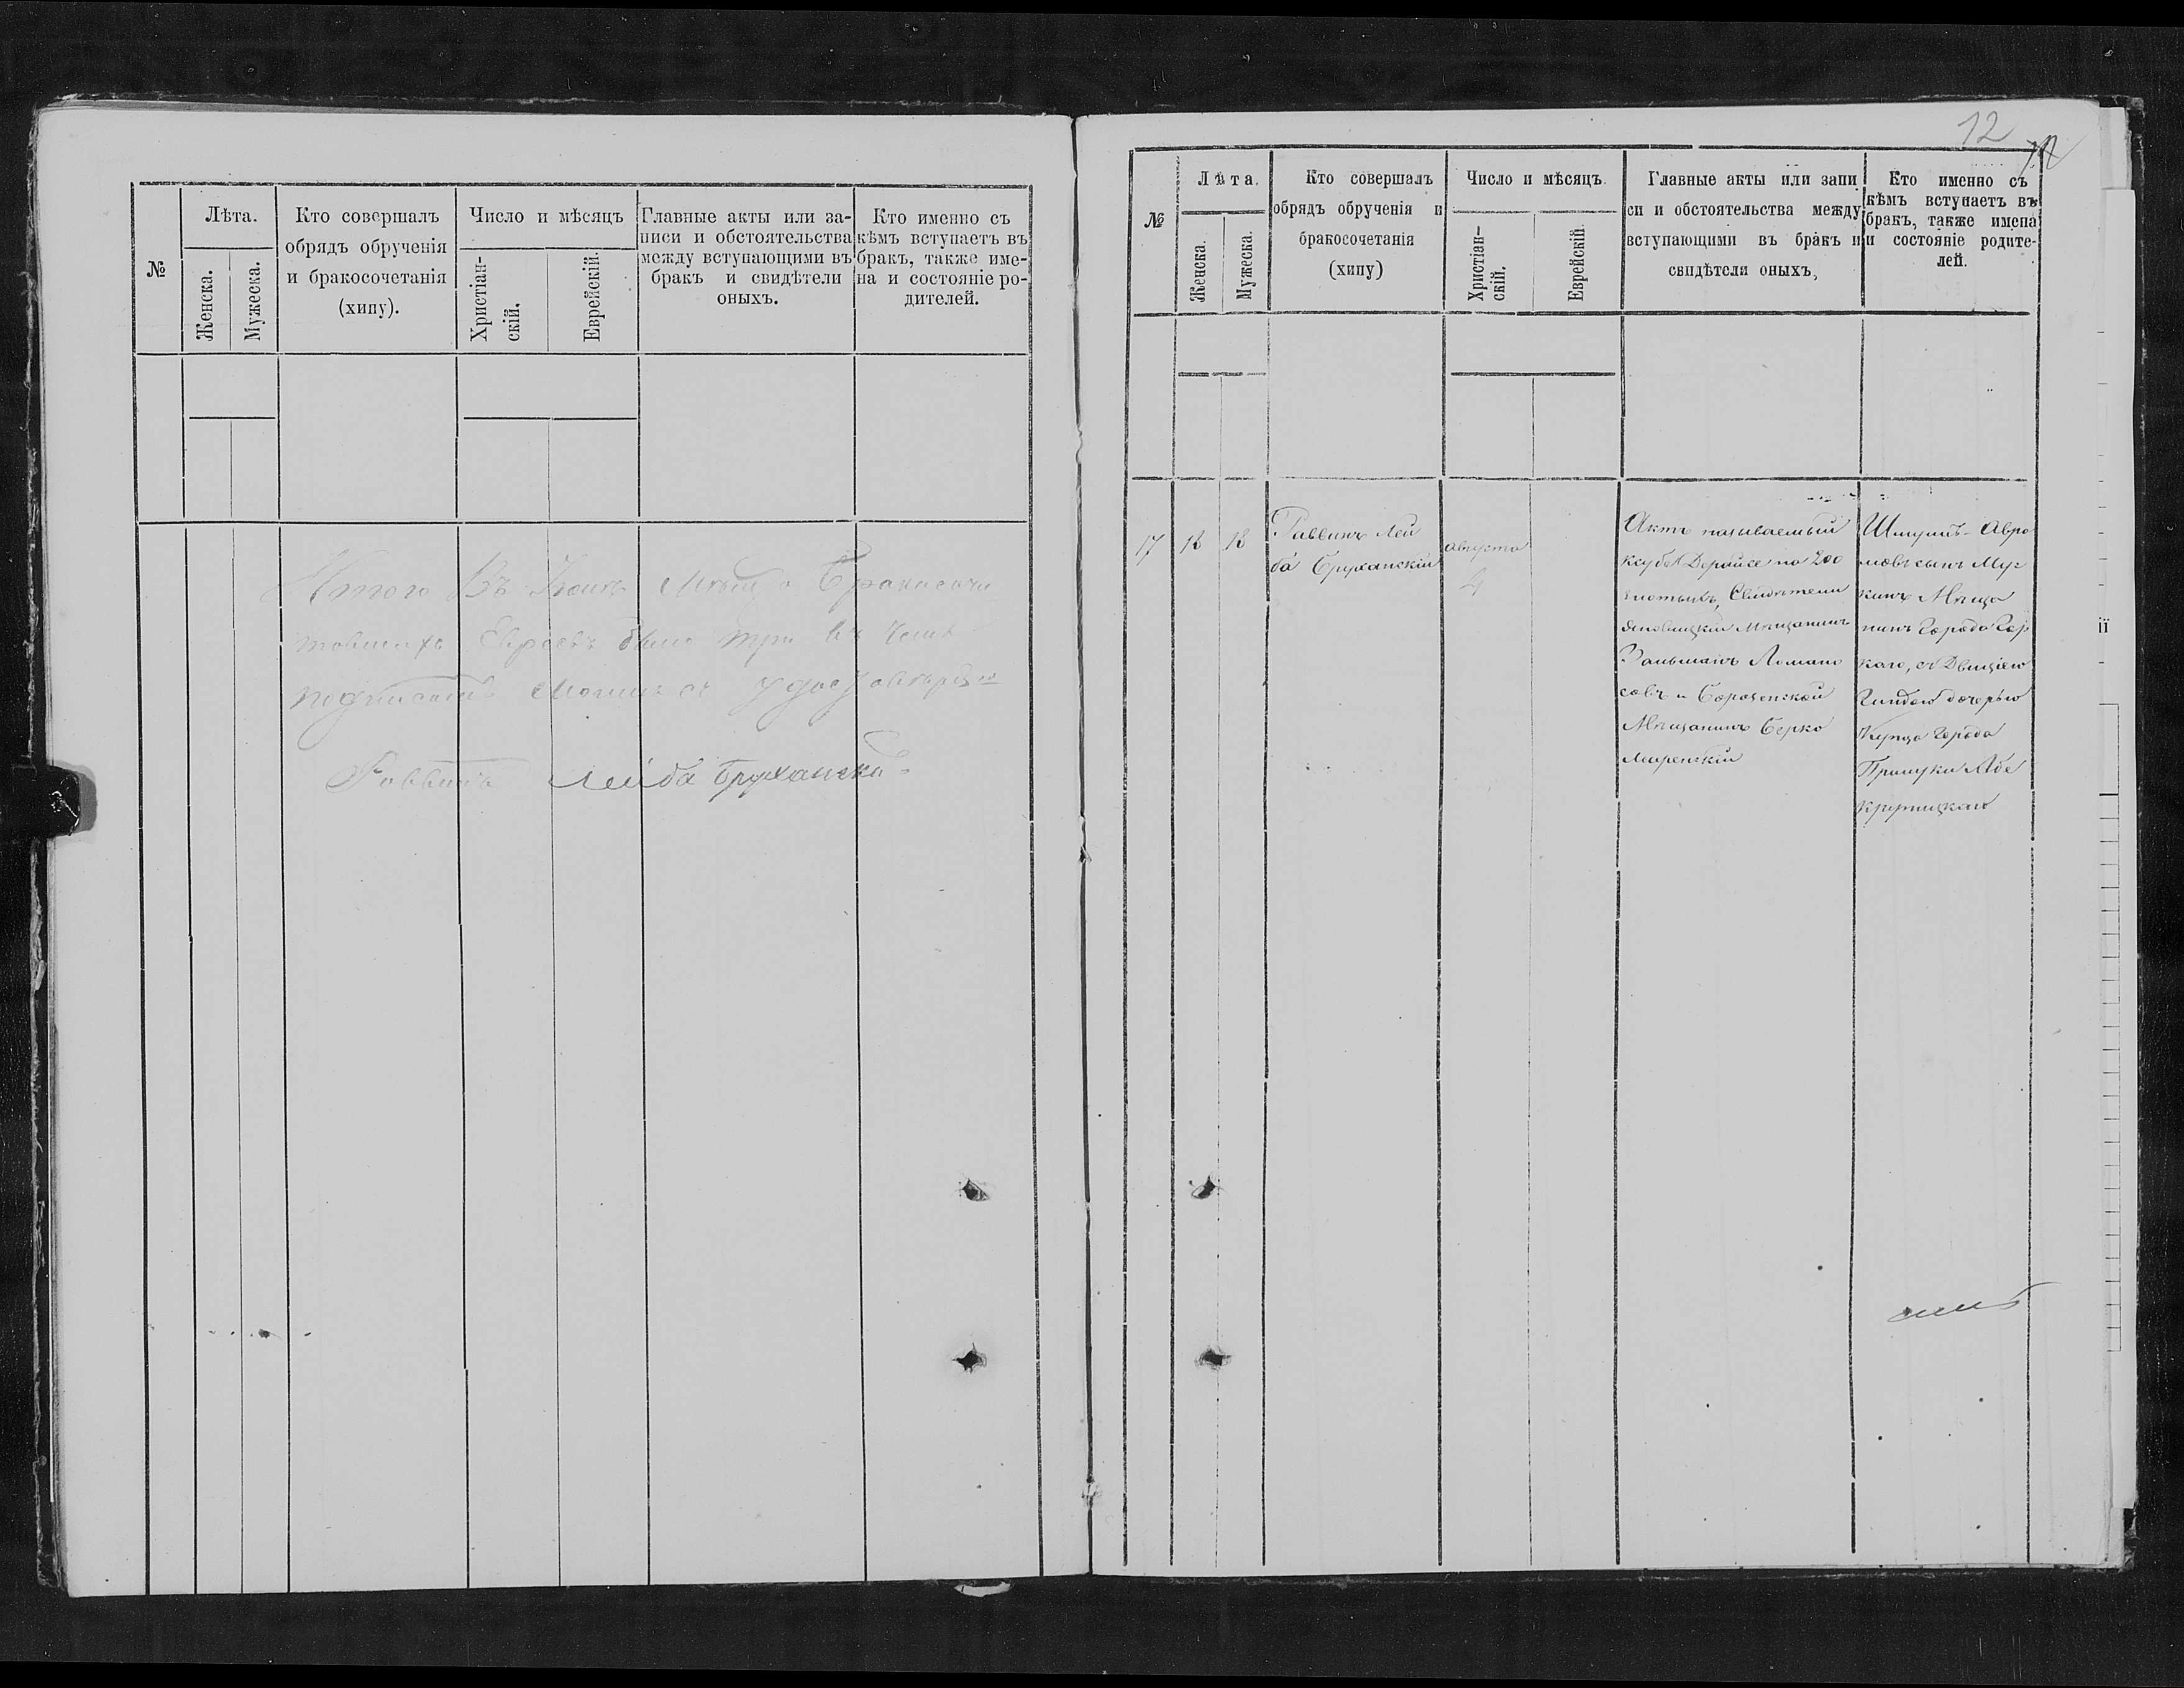 №
Лѣта.
Женска.
Мужеска.
Кто совершалъ
обрядъ обрученія
и бракосочетанія
(хипу).
Число и мѣсяцъ
Христіан-
скій.
Еврейскій.
Главные акты или за-
писи и обстоятельства
между вступающими въ
бракъ и свидѣтели
оныхъ.
Кто именно съ
кѣмъ вступаетъ въ
бракъ, также име-
на и состояніе ро-
дителей.
Итого Въ Іюнѣ
Евреевъ было три въ чемъ
подписомъ моимъ
Раввинъ Лейба Бруханскій
12
12
№
Лѣта.
Женска.
Мужеска.
Кто совершалъ
обрядъ обрученія и
бракосочетанія
(хипу)
Число и мѣсяцъ
Христіан-
скій.
Еврейскій.
Главные акты или запи
си и обстоятельства между
вступающими въ бракъ и
свидѣтели оныхъ,
Кто именно съ
кѣмъ вступаетъ въ
бракъ, также имена
и состояніе родите-
лей.
17
18
18
Раввинъ Лей
ба Бруханскій
августа
4
Актъ называемый
ксубе Дерайсе на 200
злотыхъ, Свидѣтели
Мещанинъ
Залманъ Ломано
совъ и
Мѣщанинъ Берко
Миренскій
Шмуилъ-Авра
мовъ сынъ
кинъ Мѣща
нинъ Города
каго, съ Двицѣю
Гиндою дочерью
Купца Города
Прилуки Абе
Крупицкаго